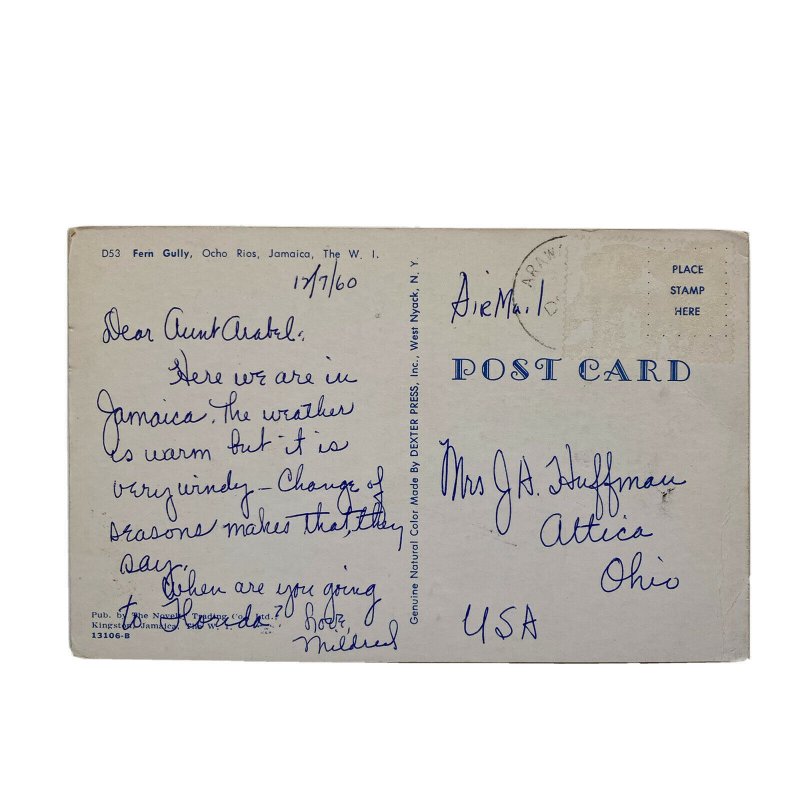 D53 Fern Gully, Ocho Rios, Jamaica, The W. I.
12/7/60
Dear Aunt Arabel,
Here we are in
Jamaica. The weather
is warm but it is
very windy – Change of
seasons makes that, they
say.
When are you going
to Floreda? Love,
Mildred
Pub. by The Novelty Trading Co., Ltd.,
Kingston, Jamaica, The W. I.
13106-B
Genuine Natural Color Made By DEXTER PRESS, Inc., West Nyack, N. Y.
AirMail
ARAW
PLACE
STAMP
HERE
POST CARD
Mrs J.A. Huffman
Attica
Ohio
USA